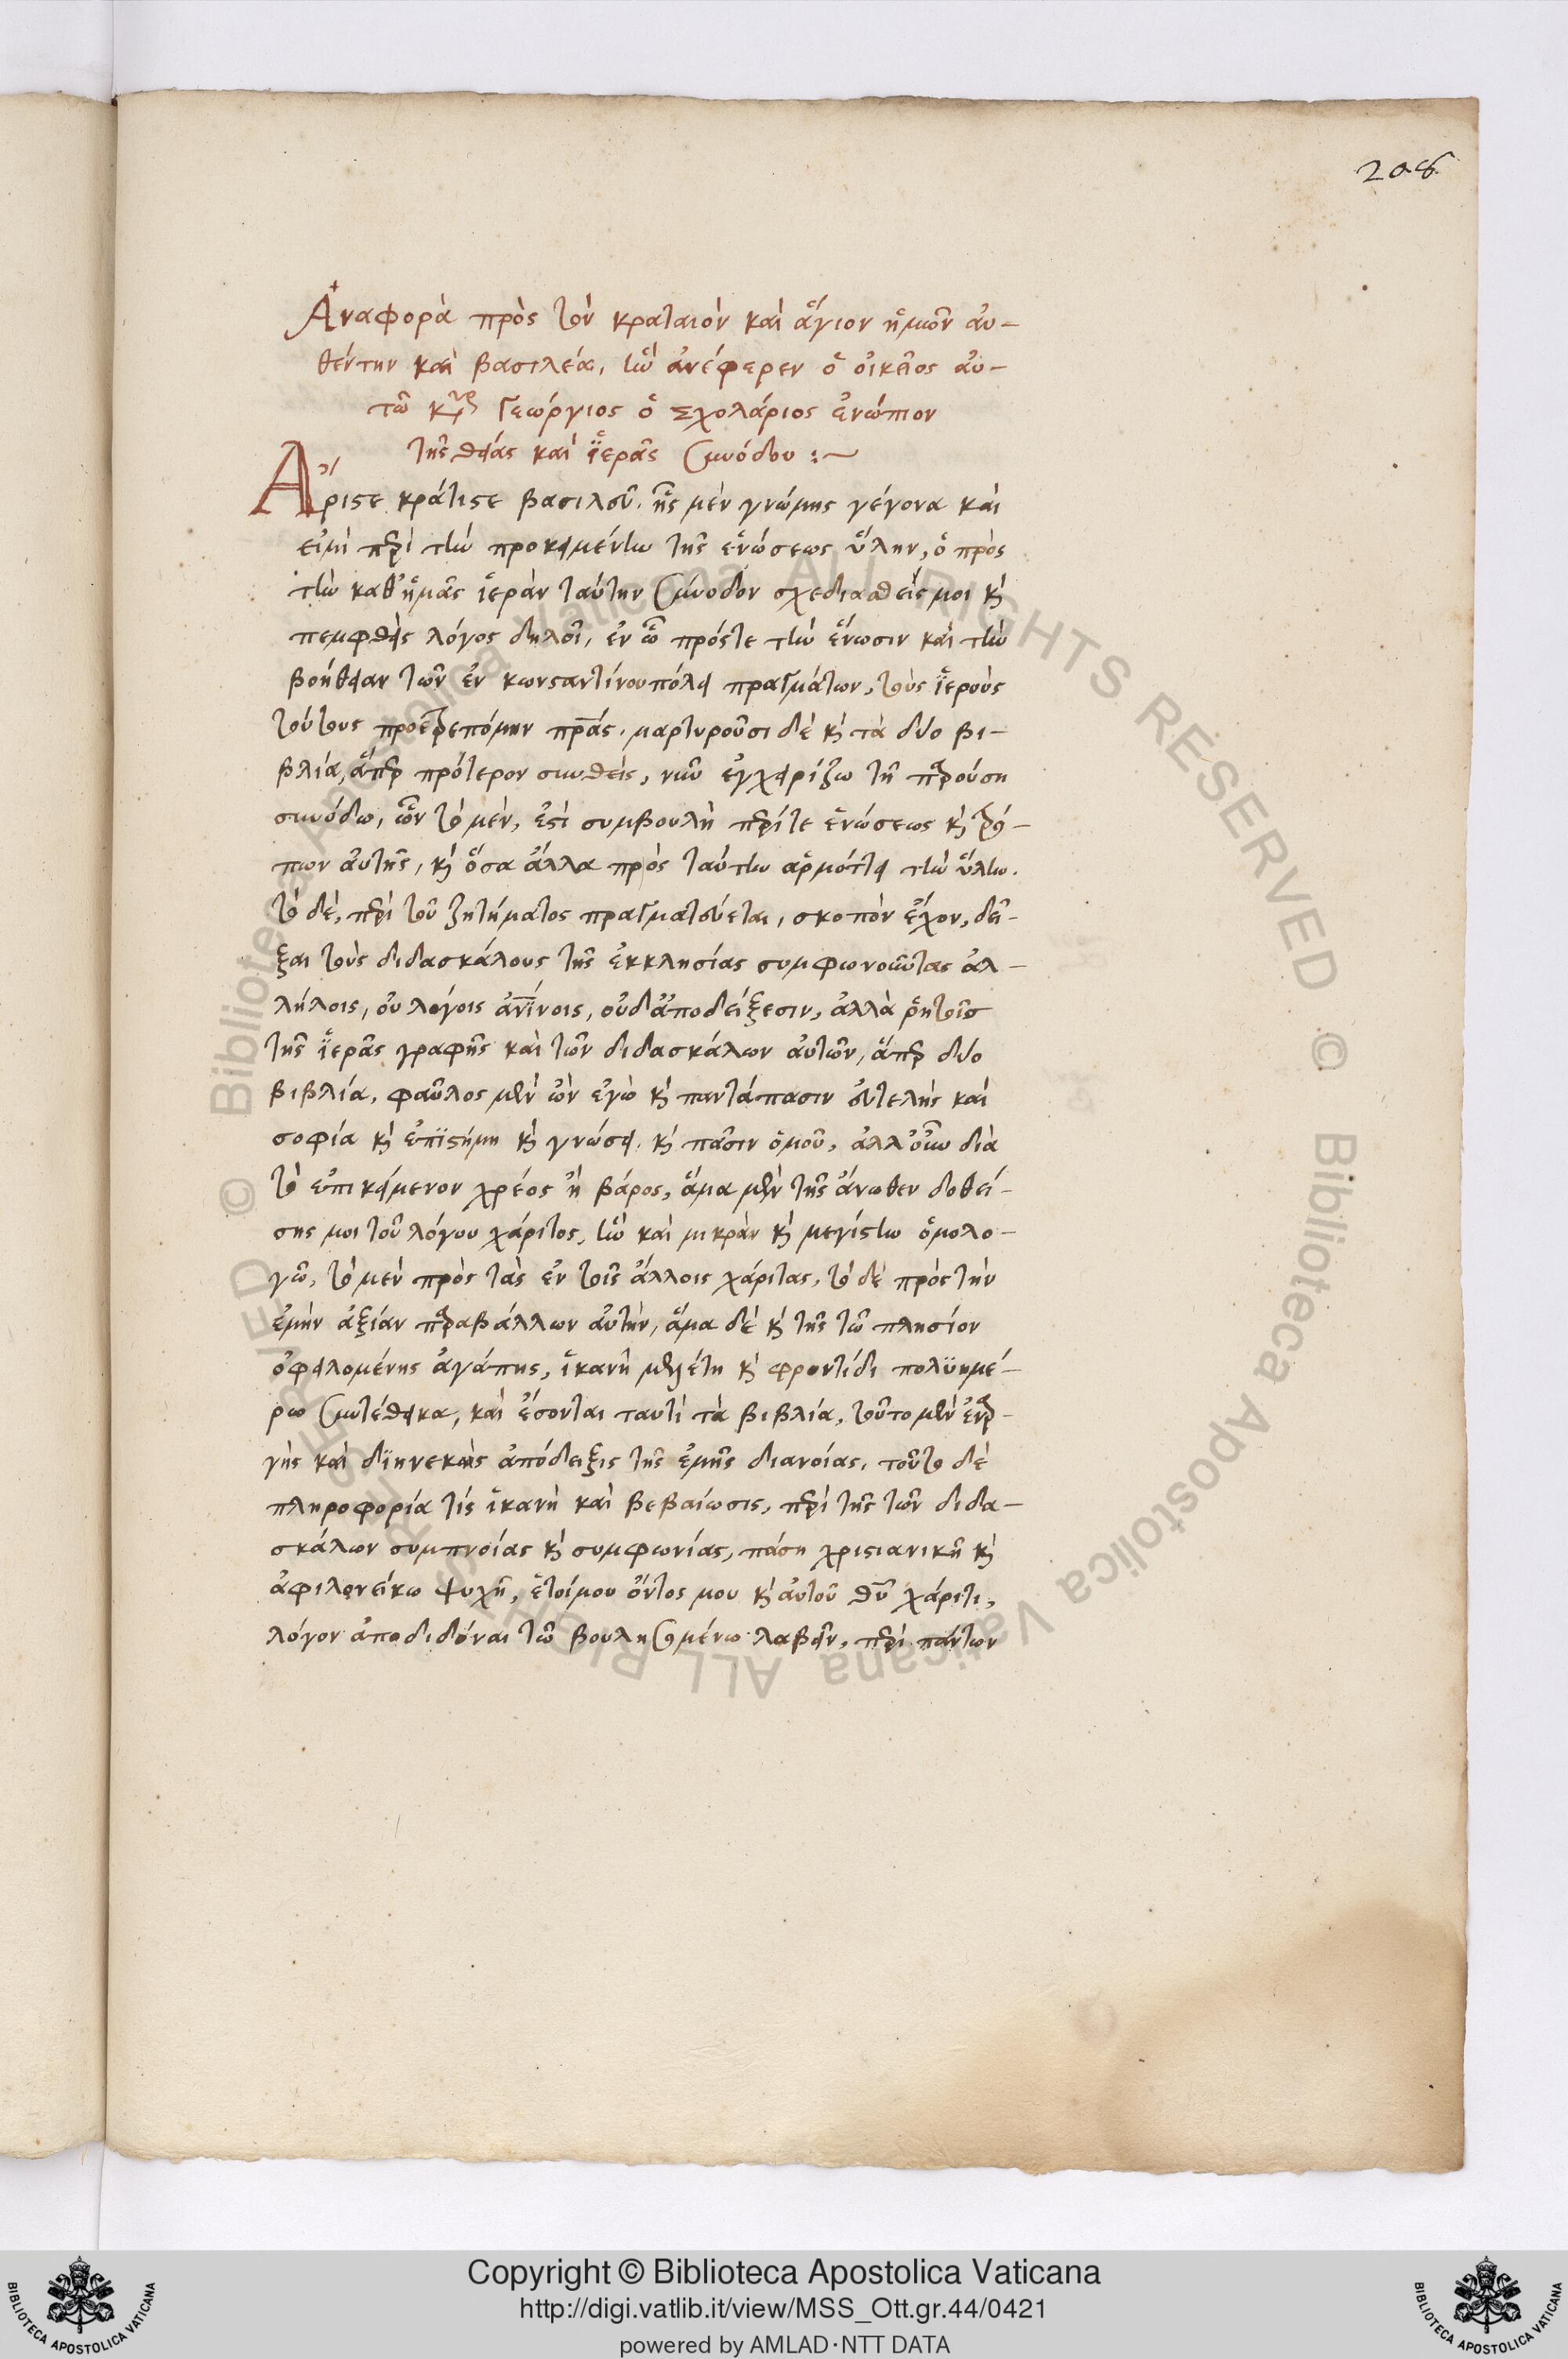 208
Ἀναφορὰ πρὸς τὸν κραταιὸν καὶ ἅγιον ἡμῶν αὐ-
θέντην καὶ βασιλέα, ἣν ἀνέφερεν ὁ οἰκεῖος αὐ-
τῶ κὺρ Γεώργιος ὁ Σχολάριος ἐνώπιον
τῆς θείας καὶ ἱερᾶς συνόδου :~
Ἄριστε κράτιστε βασιλεῦ. ἧς μὲν γνώμης γέγονα καὶ
εἰμὶ περὶ τὴν προκειμένην τῆς ἑνώσεως ὕλην, ὁ πρὸς
τὴν καθ' ἡμᾶς ἱερὰν ταύτην σύνοδον σχεδιασθείς μοι κὴ
πεμφθεὶς λόγος δηλοῖ, ἐν ὧ πρός τε τὴν ἕνωσιν καὶ τὴν
βοήθειαν τῶν ἐν κωνσταντίνου πόλει πραγμάτων, τοὺς ἱεροὺς
τούτους προετρεπόμην πρας. μαρτυροῦσι δὲ κὴ τὰ δύο βι-
βλία, ἅπερ πρότερον συνθεὶς, νῦν ἐγχειρίζω τῆ παρούση
συνόδω, ὧν τὸ μὲν, ἐστὶ συμβουλὴ περί τε ἑνώσεως κὴ τρό-
πων αὐτῆς, κὴ ὅσα ἄλλα πρὸς ταύτην ἁρμόττει τὴν ὕλην.
τὸ δὲ, περὶ τοῦ ζητήματος πραγματεύεται, σκοπὸν ἔχον, δεῖ-
ξαι τοὺς διδασκάλους τῆς ἐκκλησίας συμφωνοῦντας ἀλ-
λήλοις, οὐ λόγοις ἀνίνοις, οὐδ' ἀποδείξεσιν, ἀλλὰ ῥητοῖς
τῆς ἱερᾶς γραφῆς καὶ τῶν διδασκάλων αὐτῶν, ἅπερ δύο
βιβλία, φαῦλος μὲν ὢν ἐγὼ κὴ παντάπασιν εὐτελὴς καὶ
σοφία κὴ ἐπιστήμη κὴ γνώσει κὴ πᾶσιν ὁμοῦ, ἀλλ' οὖν διὰ
τὸ ἐπικείμενον χρέος ἢ βάρος, ἅμα μὲν τῆς ἄνωθεν δοθεί-
σης μοι τοῦ λόγου χάριτος, ἣν καὶ μικρὰν κὴ μεγίστην ὁμολο-
γῶ, τὸ μὲν πρὸς τὰς ἐν τοῖς ἄλλοις χάριτας, τὸ δὲ πρὸς τὴν
ἐμὴν ἀξίαν παραβάλλων αὐτὴν, ἅμα δὲ κὴ τῆς τῶ πλησίον
ὀφειλομένης ἀγάπης, ἱκανῆ μελέτη κὴ φροντίδι πολυημέ-
ρω συντέθεικα, καὶ ἔσονται ταυτὶ τὰ βιβλία, τοῦτο μὲν ἐναρ-
γὴς καὶ διηνεκὴς ἀπόδειξις τῆς ἐμῆς διανοίας, τοῦτο δὲ
πληροφορία τίς ἱκανὴ καὶ βεβαίωσις, περὶ τῆς τῶν διδα-
σκάλων συμπνοίας κὴ συμφωνίας, πάση χριστιανικῆ κὴ
ἀφιλονείκω ψυχῆ, ἑτοίμου ὄντος μου κὴ αὐτοῦ θυ χάριτι,
λόγον ἀποδιδόναι τῶ βουλησομένω λαβεῖν, περὶ πάντων
© Biblioteca Apostolica Vaticana ALL RIGHTS RESERVED © Biblioteca Apostolica Vaticana ALL RIGHTS RESERVED
Copyright © Biblioteca Apostolica Vaticana
http://digi.vatlib.it/view/MSS_Ott.gr.44/0421
powered by AMLAD·NTT DATA
BIBLIOTECA APOSTOLICA VATICANA
BIBLIOTECA APOSTOLICA VATICANA